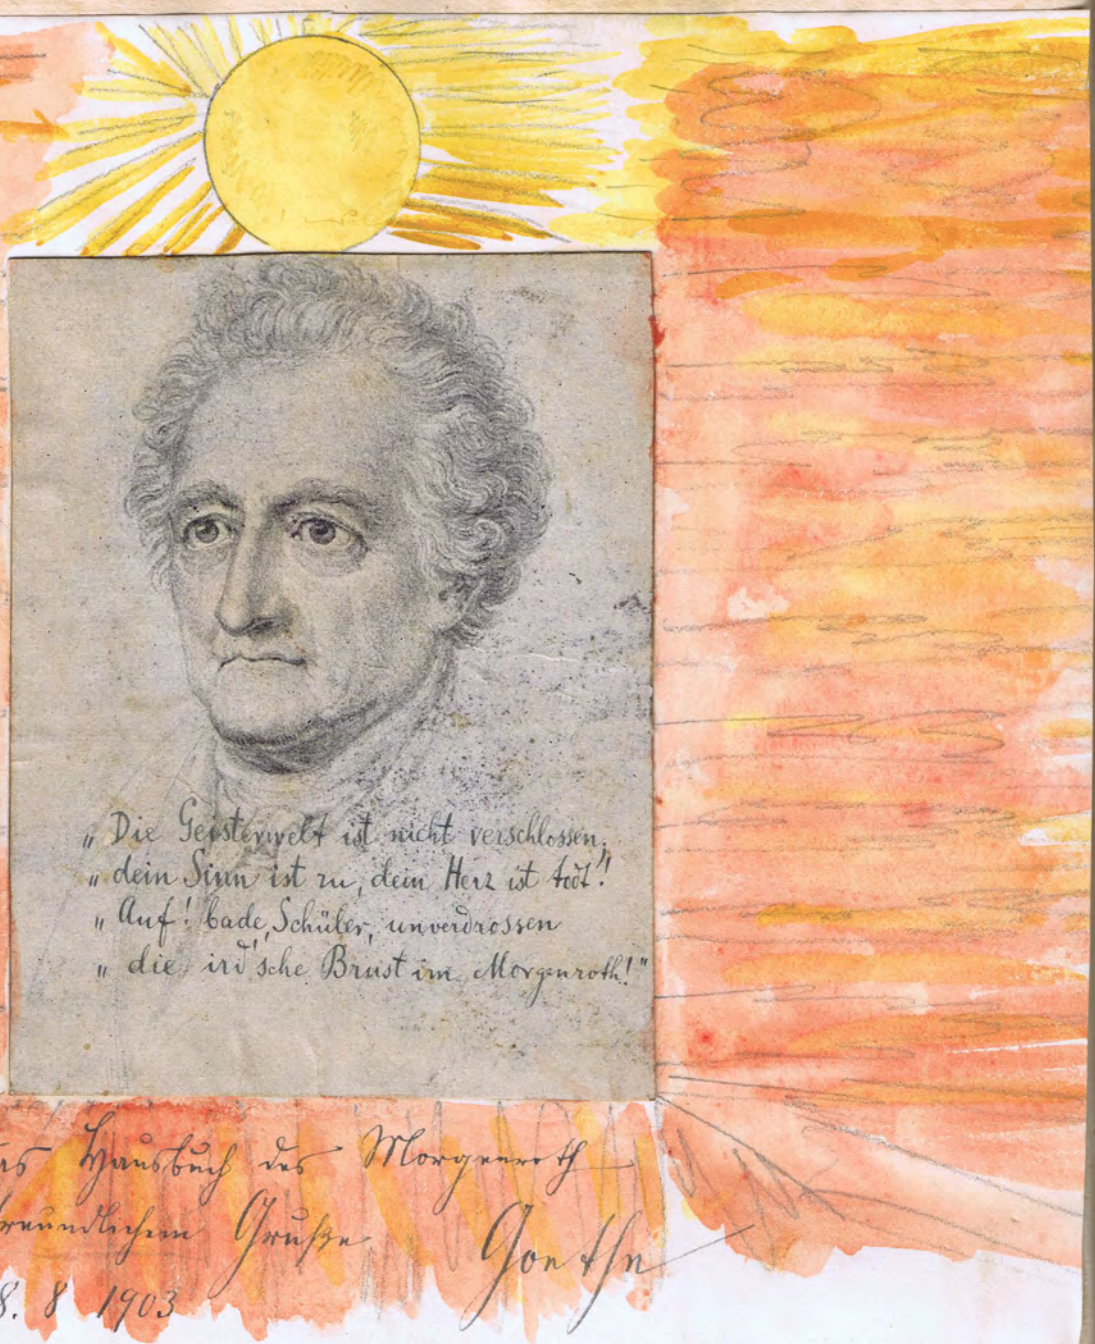 „ Die Geisterwelt ist nicht verschlossen,
„ dein Sinn ist zu, dein Herz ist todt!
„ Auf! bade, Schüler, unverdrossen
„ die ird'sche Brust im Morgenroth!"
as Hausbuch des Morgenroth
freundlichem Gruße Goethe
8. 8 1903